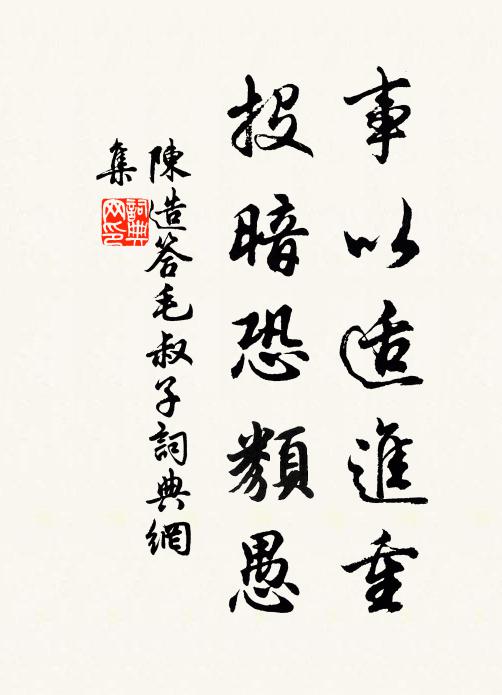 事以适進重
投暗恐類愚
陳造答毛叔子詞典網
集
詞典网印